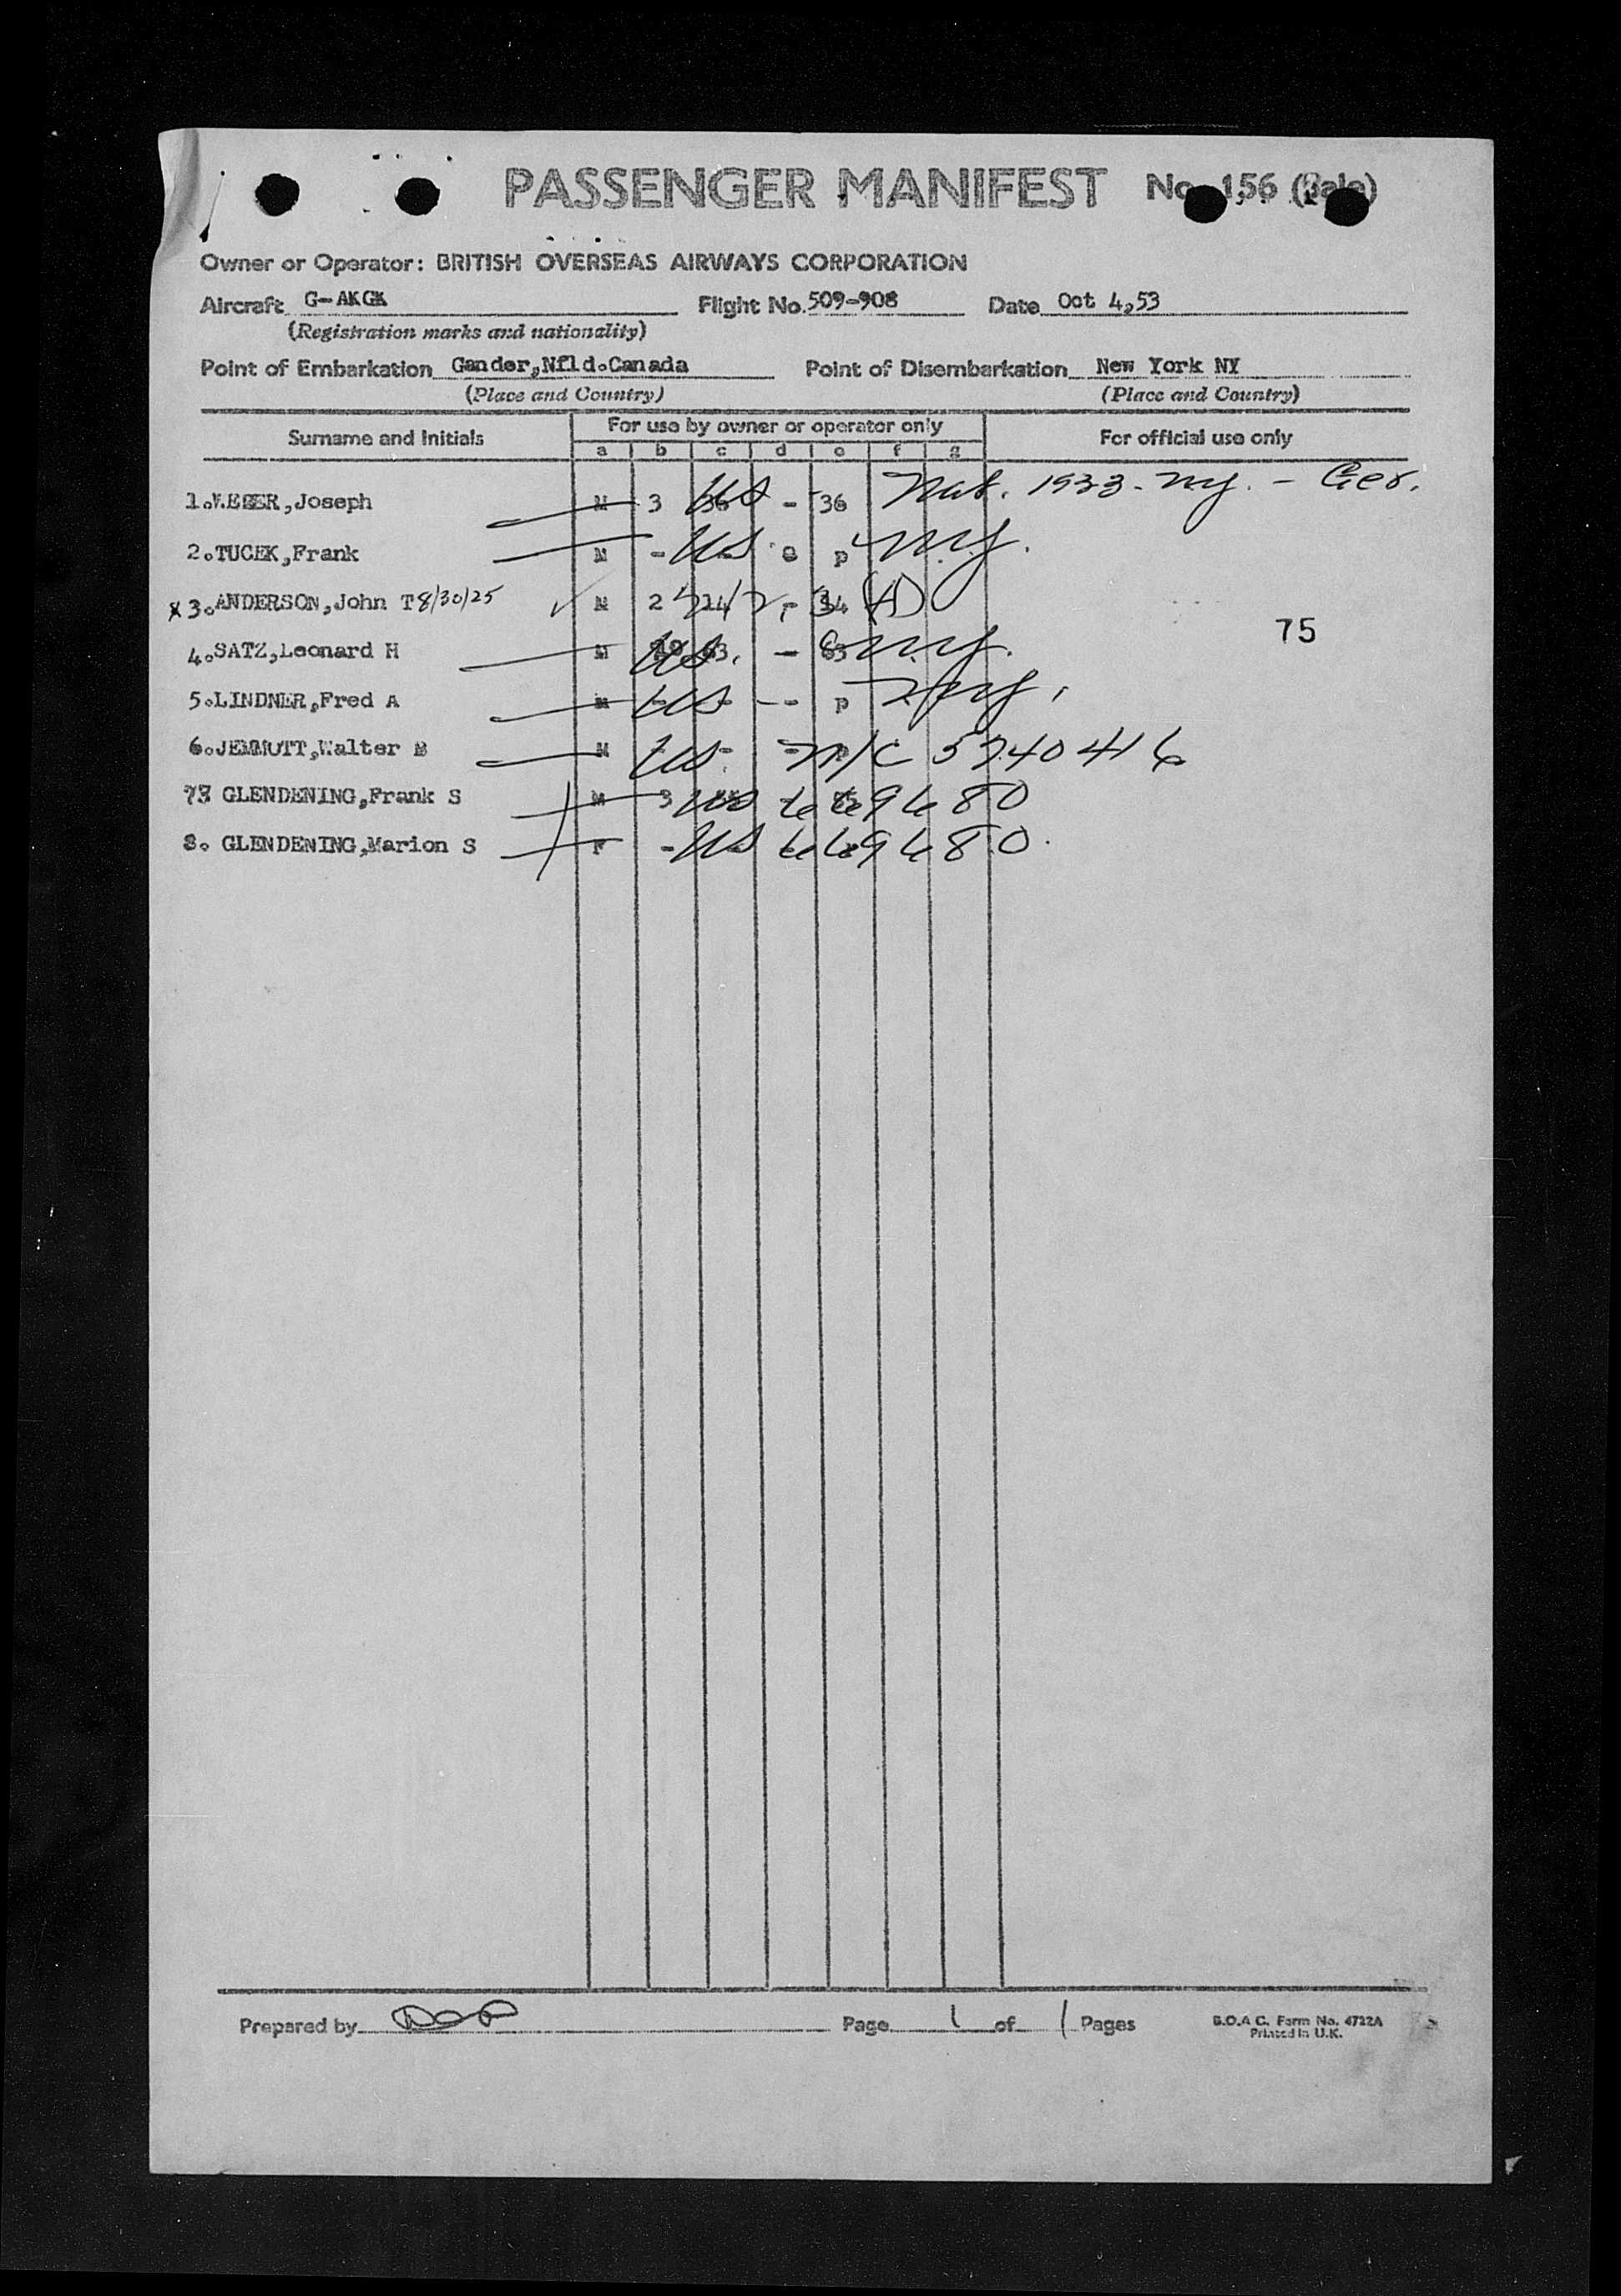 PASSENGER MANIFEST No. 156
Owner or Operator: BRITISH OVERSEAS AIRWAYS CORPORATION
Aircraft G-AKGK Flight No. 509-908 Date Oct 4,53
(Registration marks and nationality)
Point of Embarkation Gander,Nfld.Canada Point of Disembarkation New York NY
(Place and Country) (Place and Country)
For use by owner or operator only
Surname and Initials For official use only
a b c d e f g
1. Joseph M 3 36 US - 36 Nat. 1933 - NY. - Ger.
2.TUCEK,Frank M - US p NY.
x 3.ANDERSON,John T 8/30/25 ✓ M 2 (A)
4.SATZ,Leonard H M US. - 63 NY.
5.LINDNER,Fred A M US - - p NY.
6.JEMMOTT,Walter M US. N/C 5740416
GLENDENING,Frank S M 3 US 669680
8. GLENDENING,Marion S F - US 669680.
75
Prepared by Page 1 of 1 Pages
B.O.A C. Form No. 4722A
Printed in U.K.